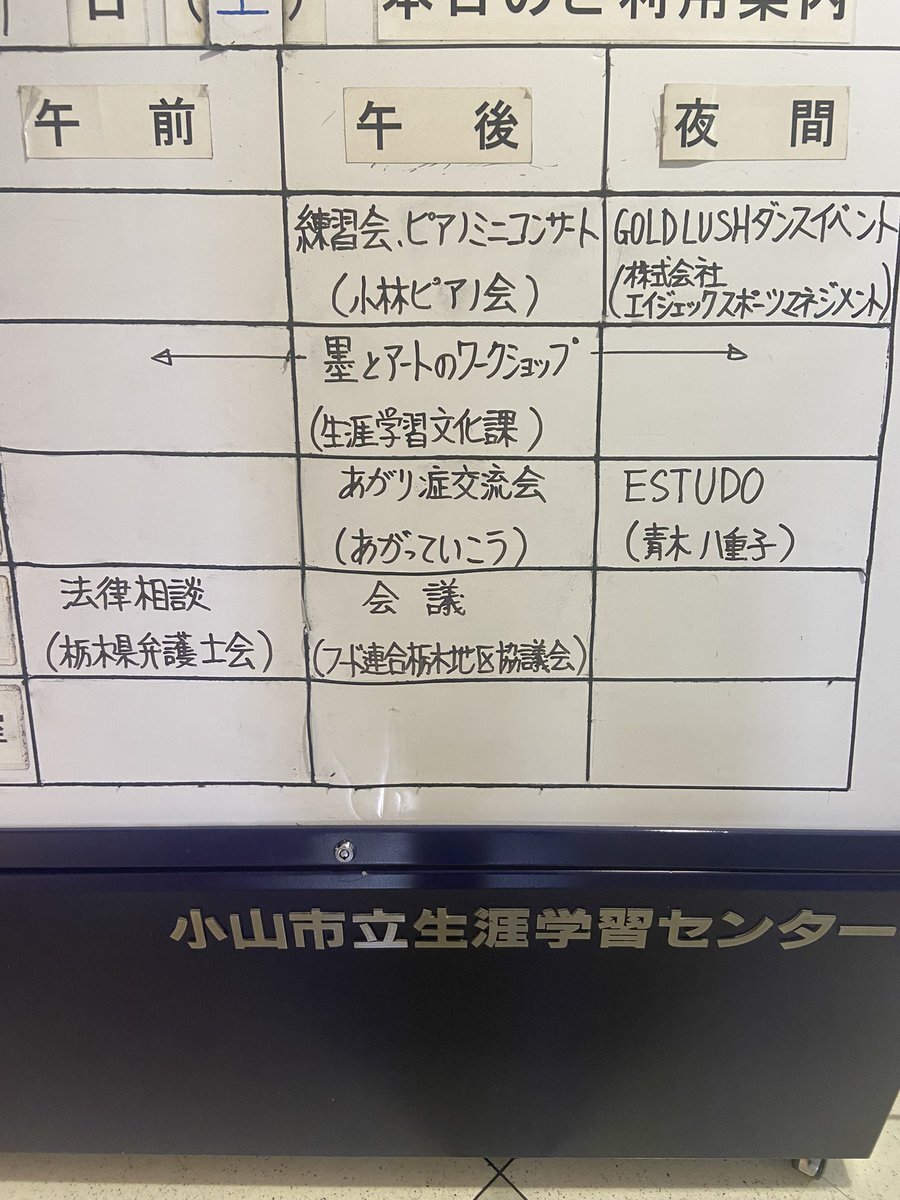 日(土) 本日のご利用案内
午前 午後 夜間
練習会、ピアノミニコンサート
(小林ピアノ会)
GOLD LUSHダンスイベント
(株式会社
エイジェックスポーツマネジメント)
墨とアートのワークショップ
(生涯学習文化課)
あがり症交流会
(あがっていこう)
ESTUDO
(青木八重子)
法律相談
(栃木県弁護士会)
会議
(フード連合栃木地区協議会)
室
小山市立生涯学習センター